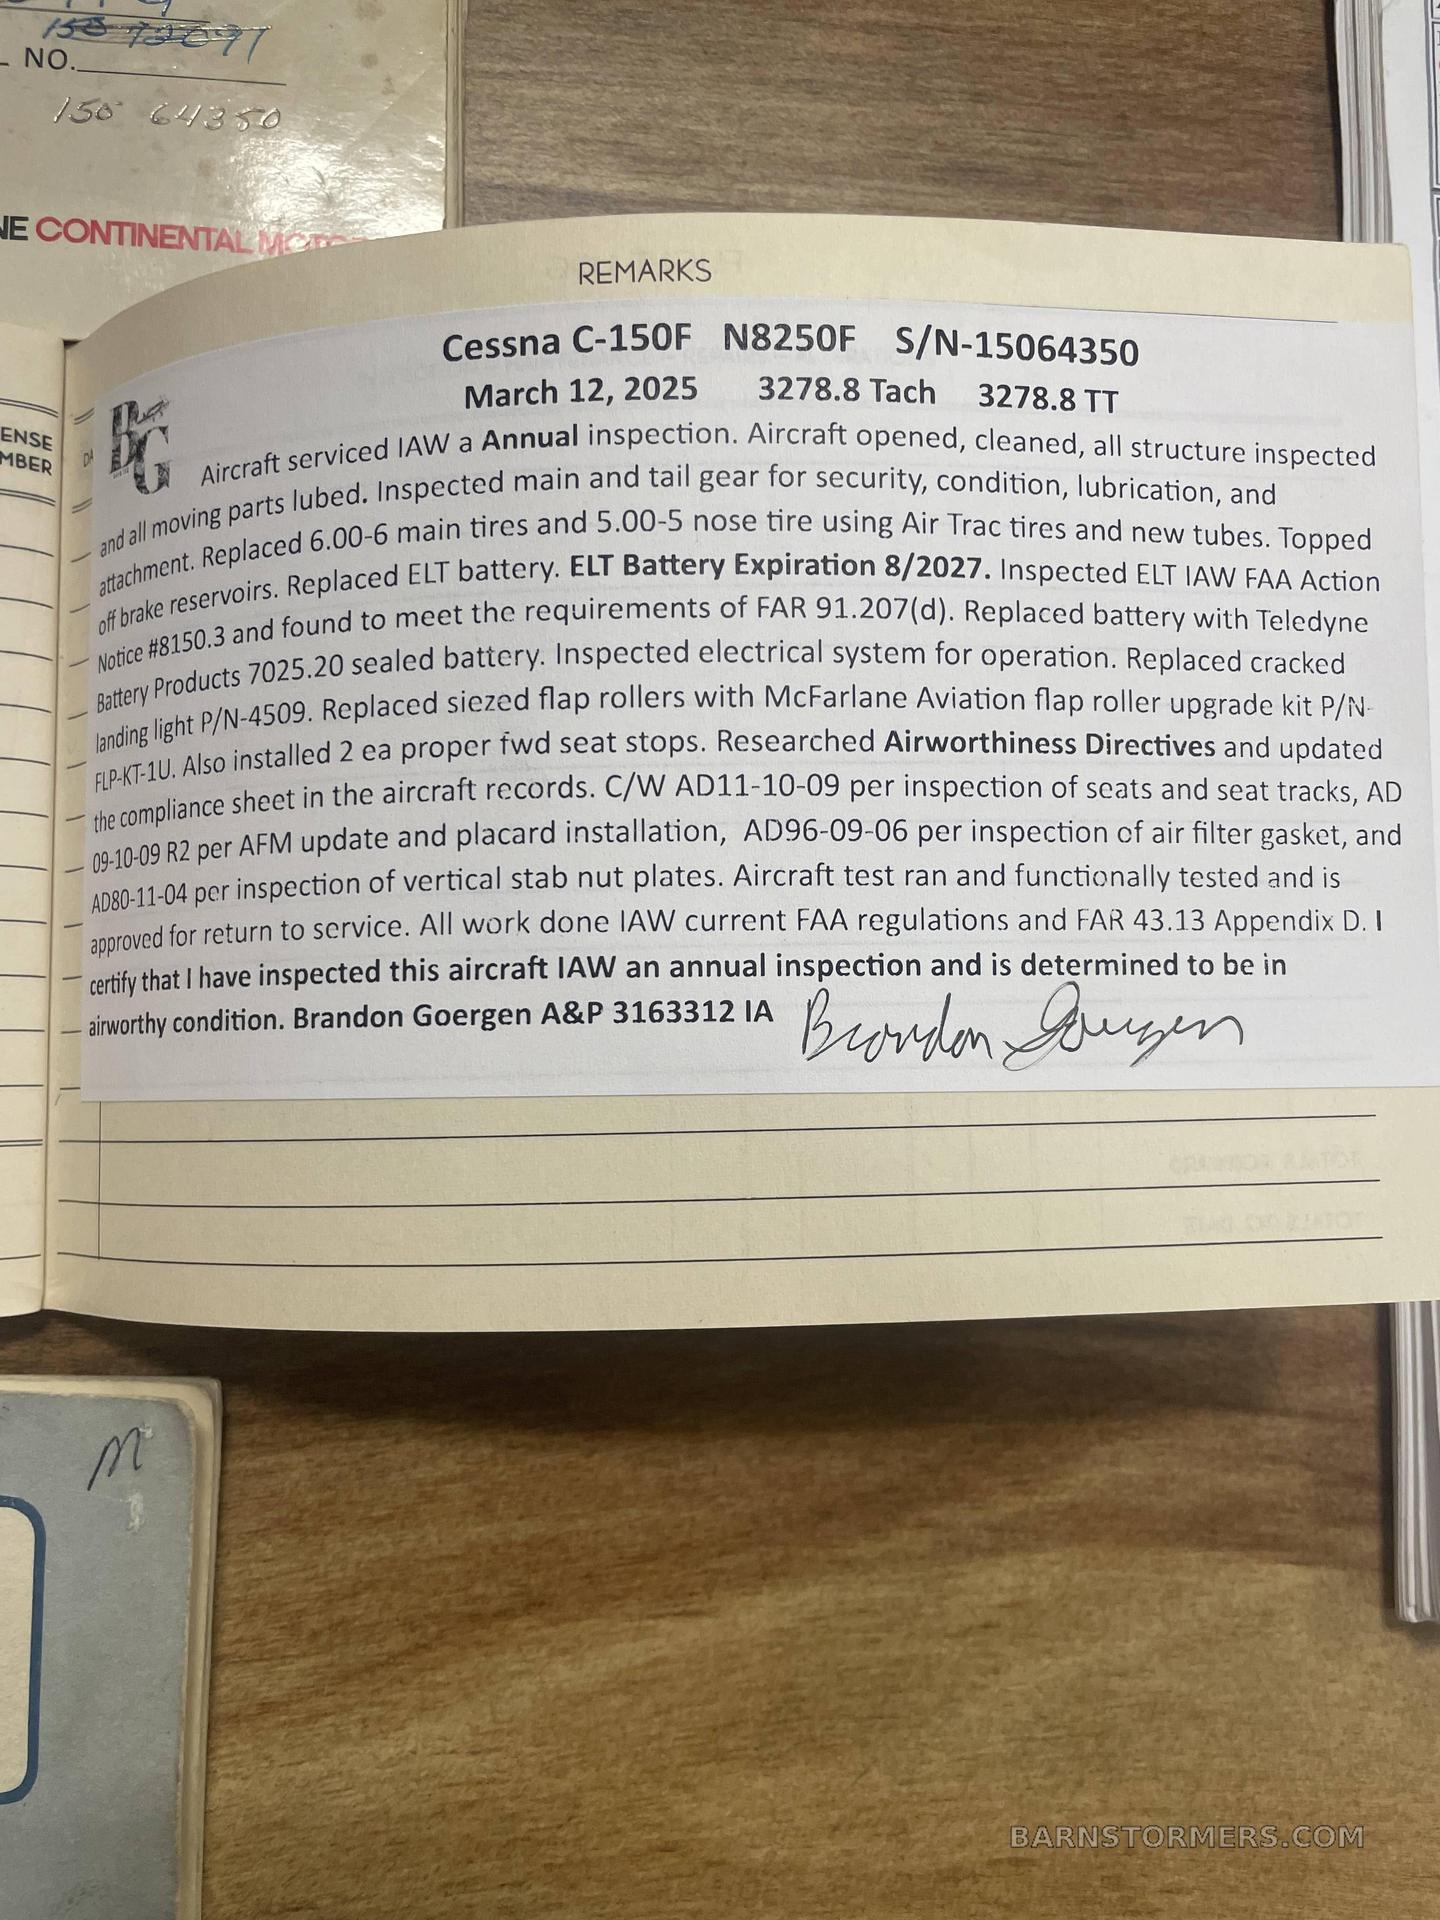 150 72091
NO.
150 64350
NE CONTINENTAL MOTO
ENSE
MBER
DA
REMARKS
Cessna C-150F N8250F S/N-15064350
March 12, 2025 3278.8 Tach 3278.8 TT
BG
Aircraft serviced IAW a Annual inspection. Aircraft opened, cleaned, all structure inspected
and all moving parts lubed. Inspected main and tail gear for security, condition, lubrication, and
attachment. Replaced 6.00-6 main tires and 5.00-5 nose tire using Air Trac tires and new tubes. Topped
off brake reservoirs. Replaced ELT battery. ELT Battery Expiration 8/2027. Inspected ELT IAW FAA Action
Notice #8150.3 and found to meet the requirements of FAR 91.207(d). Replaced battery with Teledyne
Battery Products 7025.20 sealed battery. Inspected electrical system for operation. Replaced cracked
landing light P/N-4509. Replaced siezed flap rollers with McFarlane Aviation flap roller upgrade kit P/N-
FLP-KT-1U. Also installed 2 ea proper fwd seat stops. Researched Airworthiness Directives and updated
the compliance sheet in the aircraft records. C/W AD11-10-09 per inspection of seats and seat tracks, AD
09-10-09 R2 per AFM update and placard installation, AD96-09-06 per inspection of air filter gasket, and
AD80-11-04 per inspection of vertical stab nut plates. Aircraft test ran and functionally tested and is
approved for return to service. All work done IAW current FAA regulations and FAR 43.13 Appendix D. I
certify that I have inspected this aircraft IAW an annual inspection and is determined to be in
airworthy condition. Brandon Goergen A&P 3163312 IA Brandon Goergen
M
BARNSTORMERS.COM